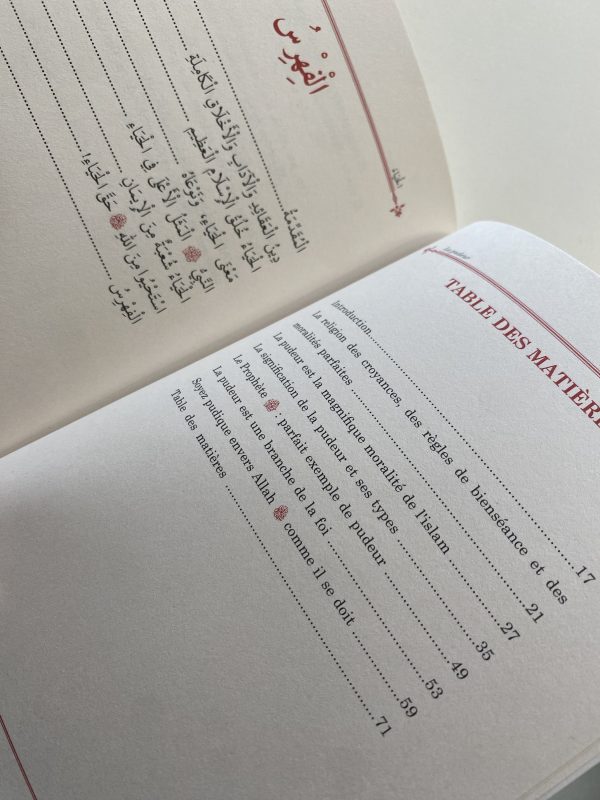 الحياء
الْفِهْرِسُ
الْمُقَدِّمَةُ ........
دِينُ الْعَقَائِدِ وَالْآدَابِ وَالْأَخْلَاقِ الْكَامِلَةِ
الْحَيَاءُ خُلُقُ الْإِسْلَامِ الْعَظِيمِ ........
مَعْنَى الْحَيَاءِ، وَنَوْعَاهُ ........
النَّبِيُّ ﷺ الْمَثَلُ الْأَعْلَى فِي الْحَيَاءِ ........
الْحَيَاءُ شُعْبَةٌ مِنَ الْإِيمَانِ ........
اسْتَحْيُوا مِنَ اللهِ ﷻ حَقَّ الْحَيَاءِ! ........
الْفِهْرِسُ ........
La pudeur
TABLE DES MATIÈRE
Introduction........17
La religion des croyances, des règles de bienséance et des
moralités parfaites ........21
La pudeur est la magnifique moralité de l'islam ........27
La signification de la pudeur et ses types ........35
Le Prophète ﷺ : parfait exemple de pudeur ........49
La pudeur est une branche de la foi ........53
Soyez pudique envers Allah ﷻ comme il se doit ........59
Table des matières ........71